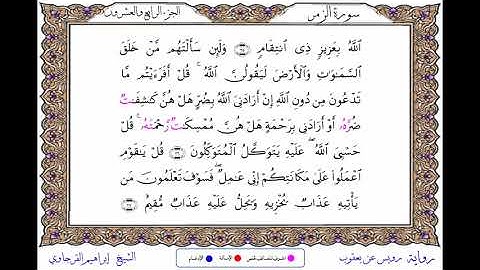 سورة الزمر
الجزء الرابع والعشرون
ٱللَّهُ بِعَزِيزٖ ذِي ٱنتِقَامٖ ۝ وَلَئِن سَأَلۡتَهُم مَّنۡ خَلَقَ
ٱلسَّمَٰوَٰتِ وَٱلۡأَرۡضَ لَيَقُولُنَّ ٱللَّهُۚ قُلۡ أَفَرَءَيۡتُم مَّا
تَدۡعُونَ مِن دُونِ ٱللَّهِ إِنۡ أَرَادَنِيَ ٱللَّهُ بِضُرٍّ هَلۡ هُنَّ كَٰشِفَٰتٞ
ضُرَّهُۥٓ أَوۡ أَرَادَنِي بِرَحۡمَةٍ هَلۡ هُنَّ مُمۡسِكَٰتٞ رَّحۡمَتَهُۥۚ قُلۡ
حَسۡبِيَ ٱللَّهُۖ عَلَيۡهِ يَتَوَكَّلُ ٱلۡمُتَوَكِّلُونَ ۝ قُلۡ يَٰقَوۡمِ
ٱعۡمَلُواْ عَلَىٰ مَكَانَتِكُمۡ إِنِّي عَٰمِلٞۖ فَسَوۡفَ تَعۡلَمُونَ ۝ مَن
يَأۡتِيهِ عَذَابٞ يُخۡزِيهِ وَيَحِلُّ عَلَيۡهِ عَذَابٞ مُّقِيمٌ ۝
رواية رويس عن يعقوب
الإمالة
الإدغام
الشيخ إبراهيم القرجاوي